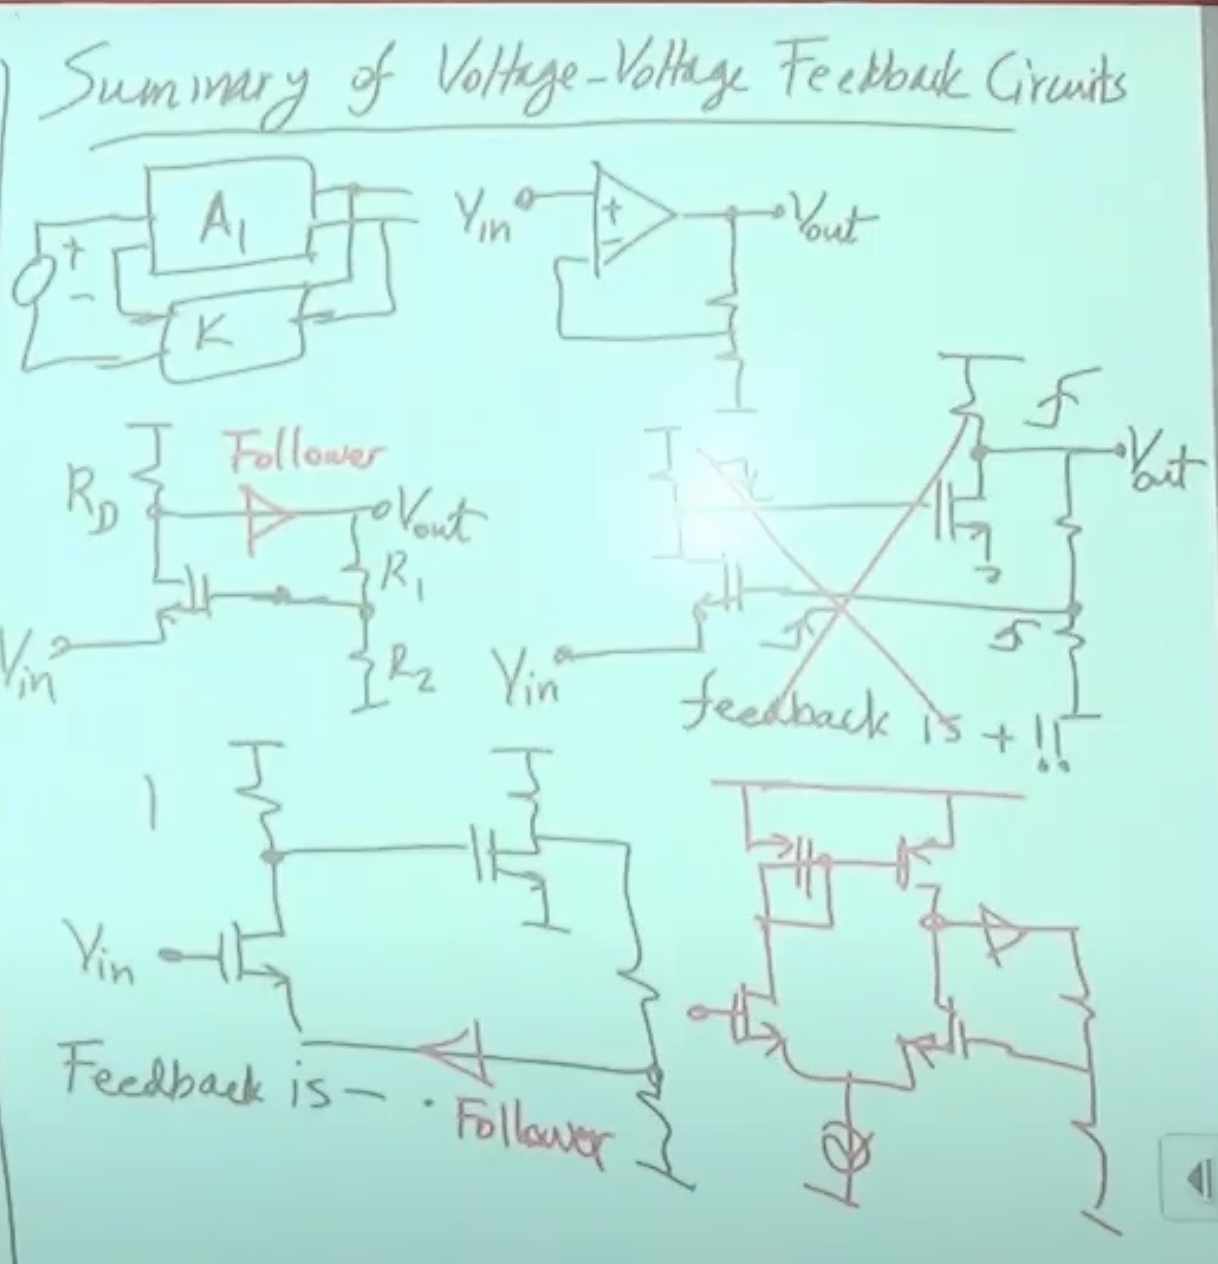 Summary of Voltage-Voltage Feedback Circuits
A1
+
-
K
Vin
+
-
Vout
RD
Follower
Vout
R1
R2
Vin
Vout
Vin
feedback is + !!
Vin
Feedback is - .
Follower